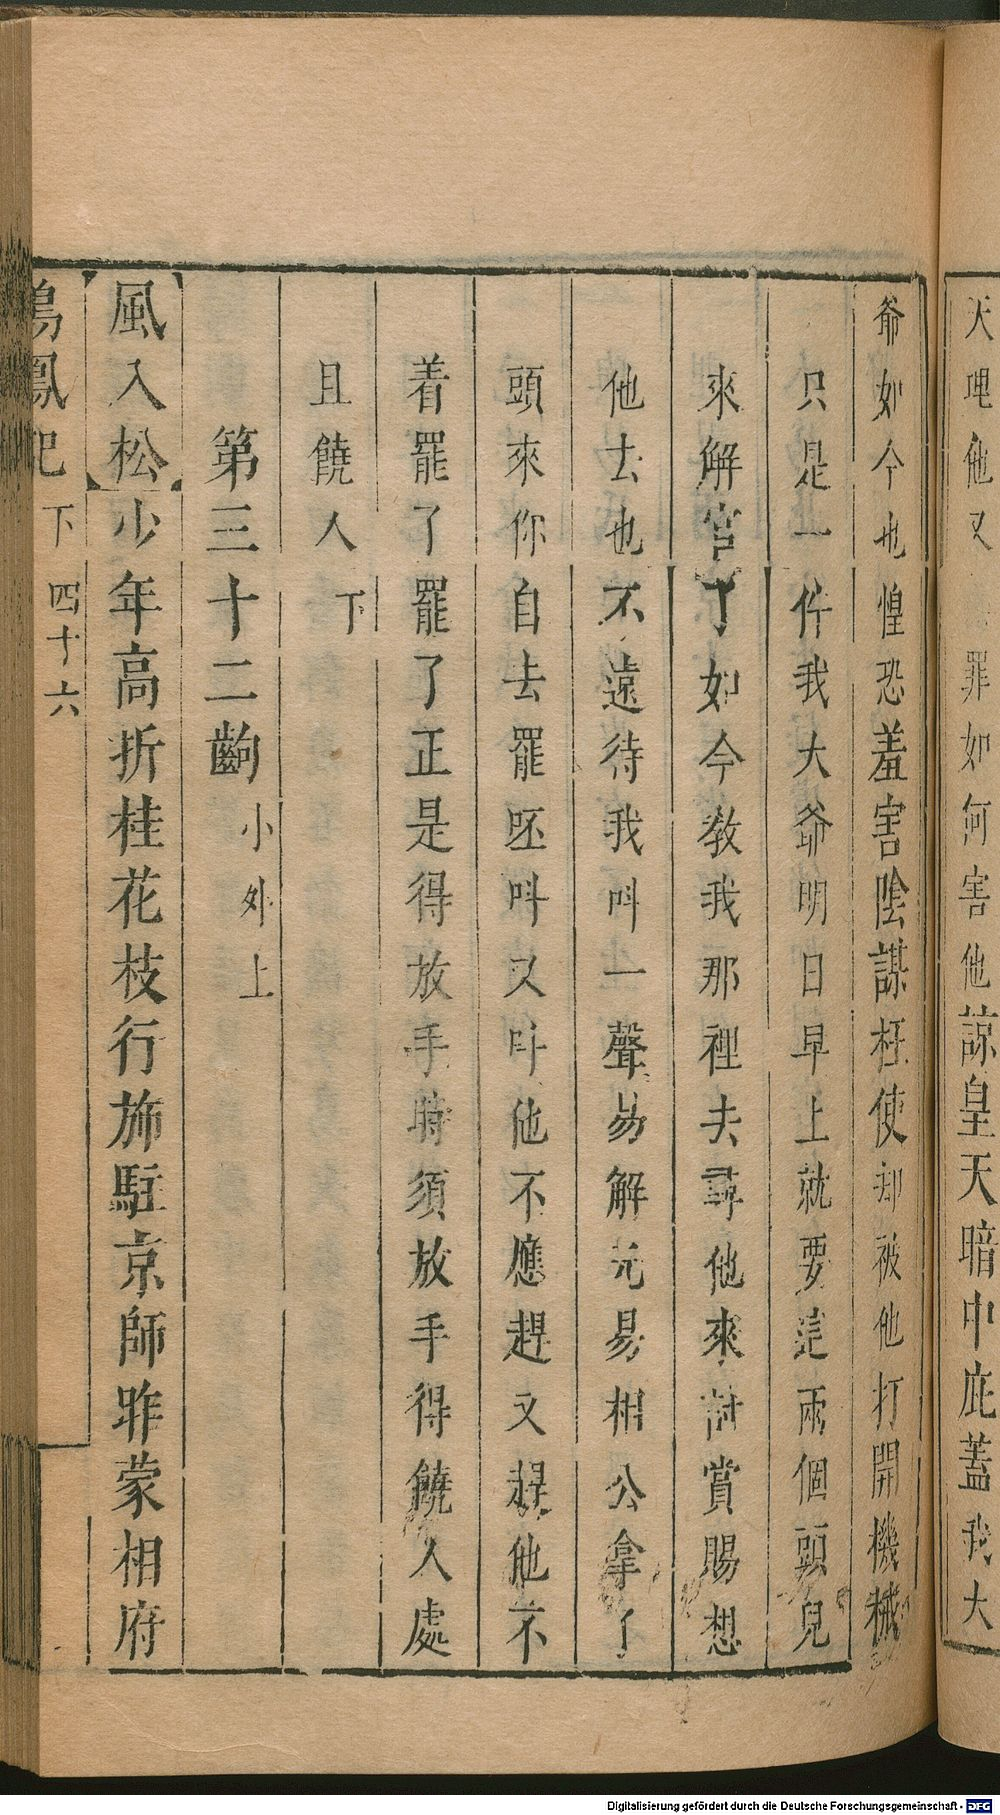 天理他又 罪如何害他諒皇天暗中庇蓋我大
爺如今也惶恐羞害陰謀枉使却被他打開機械
只是一件我大爺明日早上就要這兩個頭兒
來解官了如今教我那裡去尋他來討賞賜想
他去也不遠待我呌一聲易解元易相公拿了
頭來你自去罷呸呌又呌他不應趕又趕他不
着罷了罷了正是得放手時須放手得饒人處
且饒人 下
第三十二齣 小外上
風入松 少年高折桂花枝行旆駐京師昨蒙相府
鳴鳳記 下 四十六
Digitalisierung gefördert durch die Deutsche Forschungsgemeinschaft - DFG